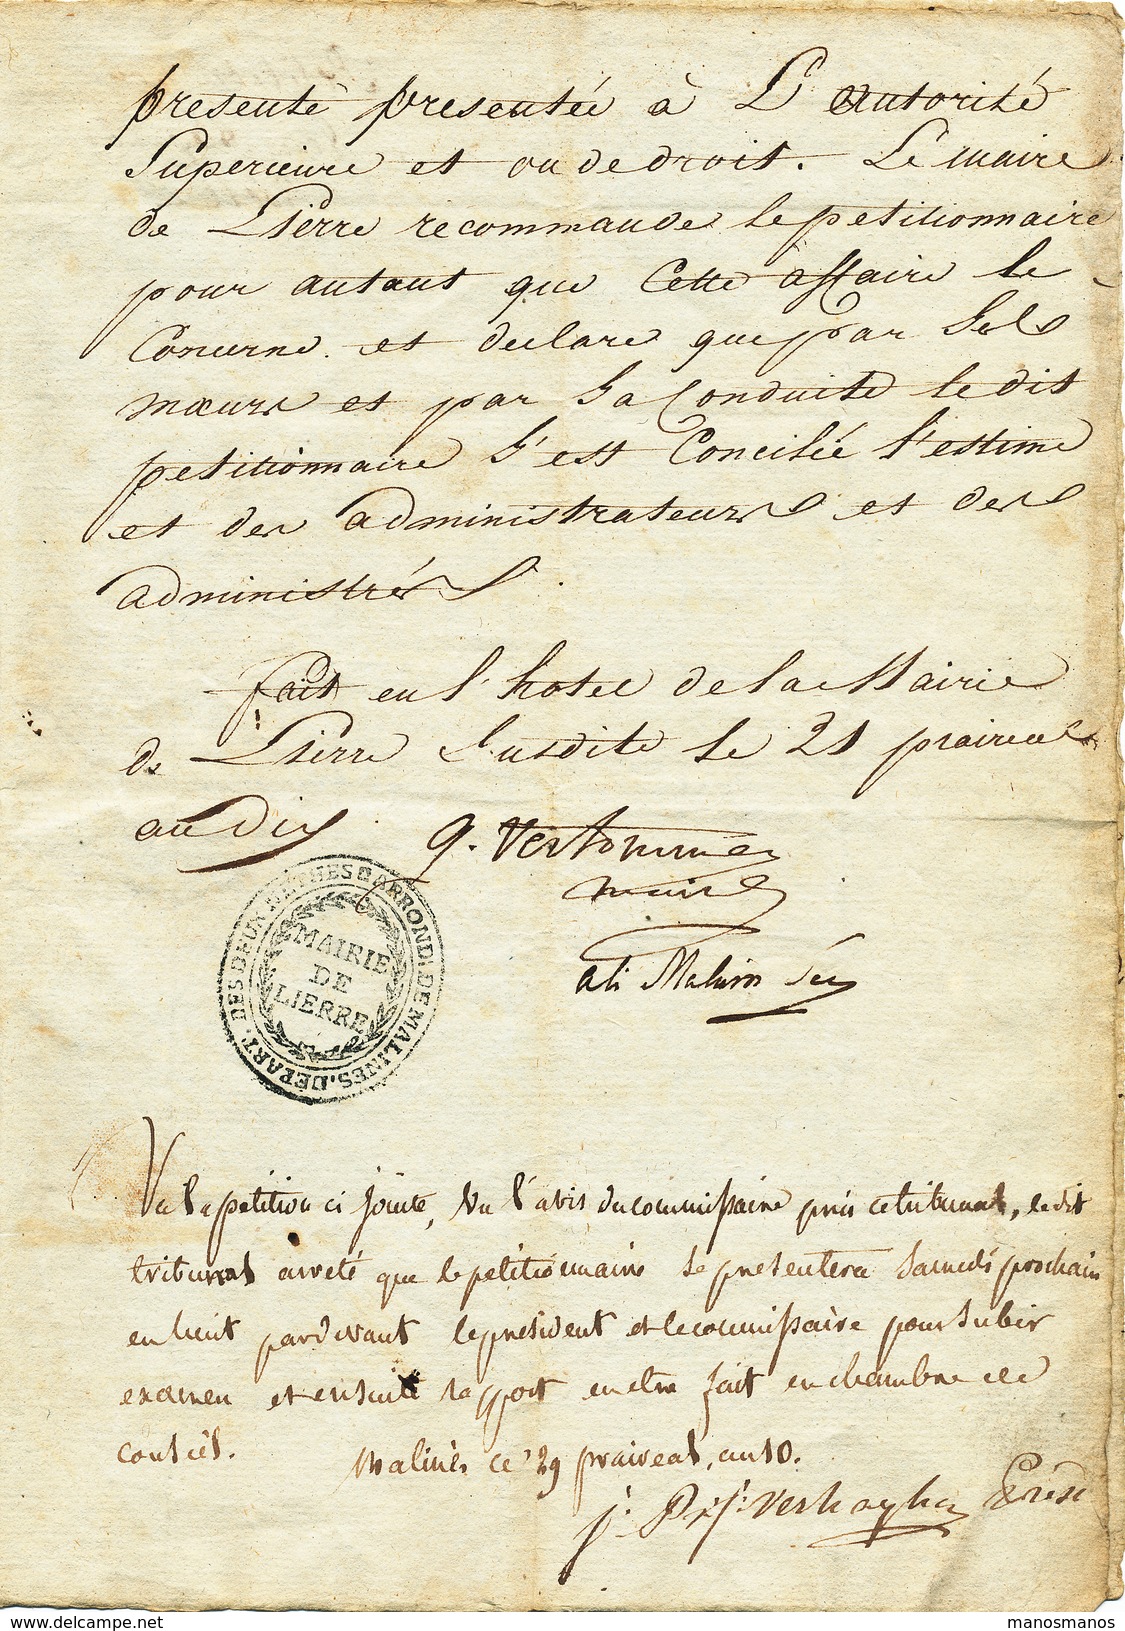 presenté presentée à L'autorité
Superieure et ou de droit. Le maire
de Lierre recommande le petitionnaire
pour autant que Cette affaire le
Concerne. et declare que par Ses
mœurs et par Sa Conduite le dit
petitionnaire S'est Conciliée l'estime
et des administrateurs et des
administrés.
fait en l'hotel de la Mairie
de Lierre Susdite le 21 prairial
an Dix
G. Vertommen
maire
DEPART. DES DEUX NETHES ARRONDI. DE MALINES.
MAIRIE
DE
LIERRE
Vu la petition ci jointe, Vu l'avis du commissaire près ce tribunal, le dit
tribunal arreté que le petitionnaire se presentera Samedi prochain
en huit pardevant le president et le commissaire pour Subir
examen et ensuite rapport en etre fait en chambre de
conseil.
Malines ce 29 praireal, an 10.
Verhaghen Présdt
manosmanos